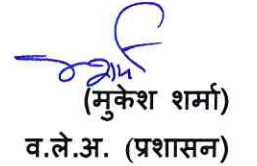 (मुकेश शर्मा)
व.ले.अ. (प्रशासन)